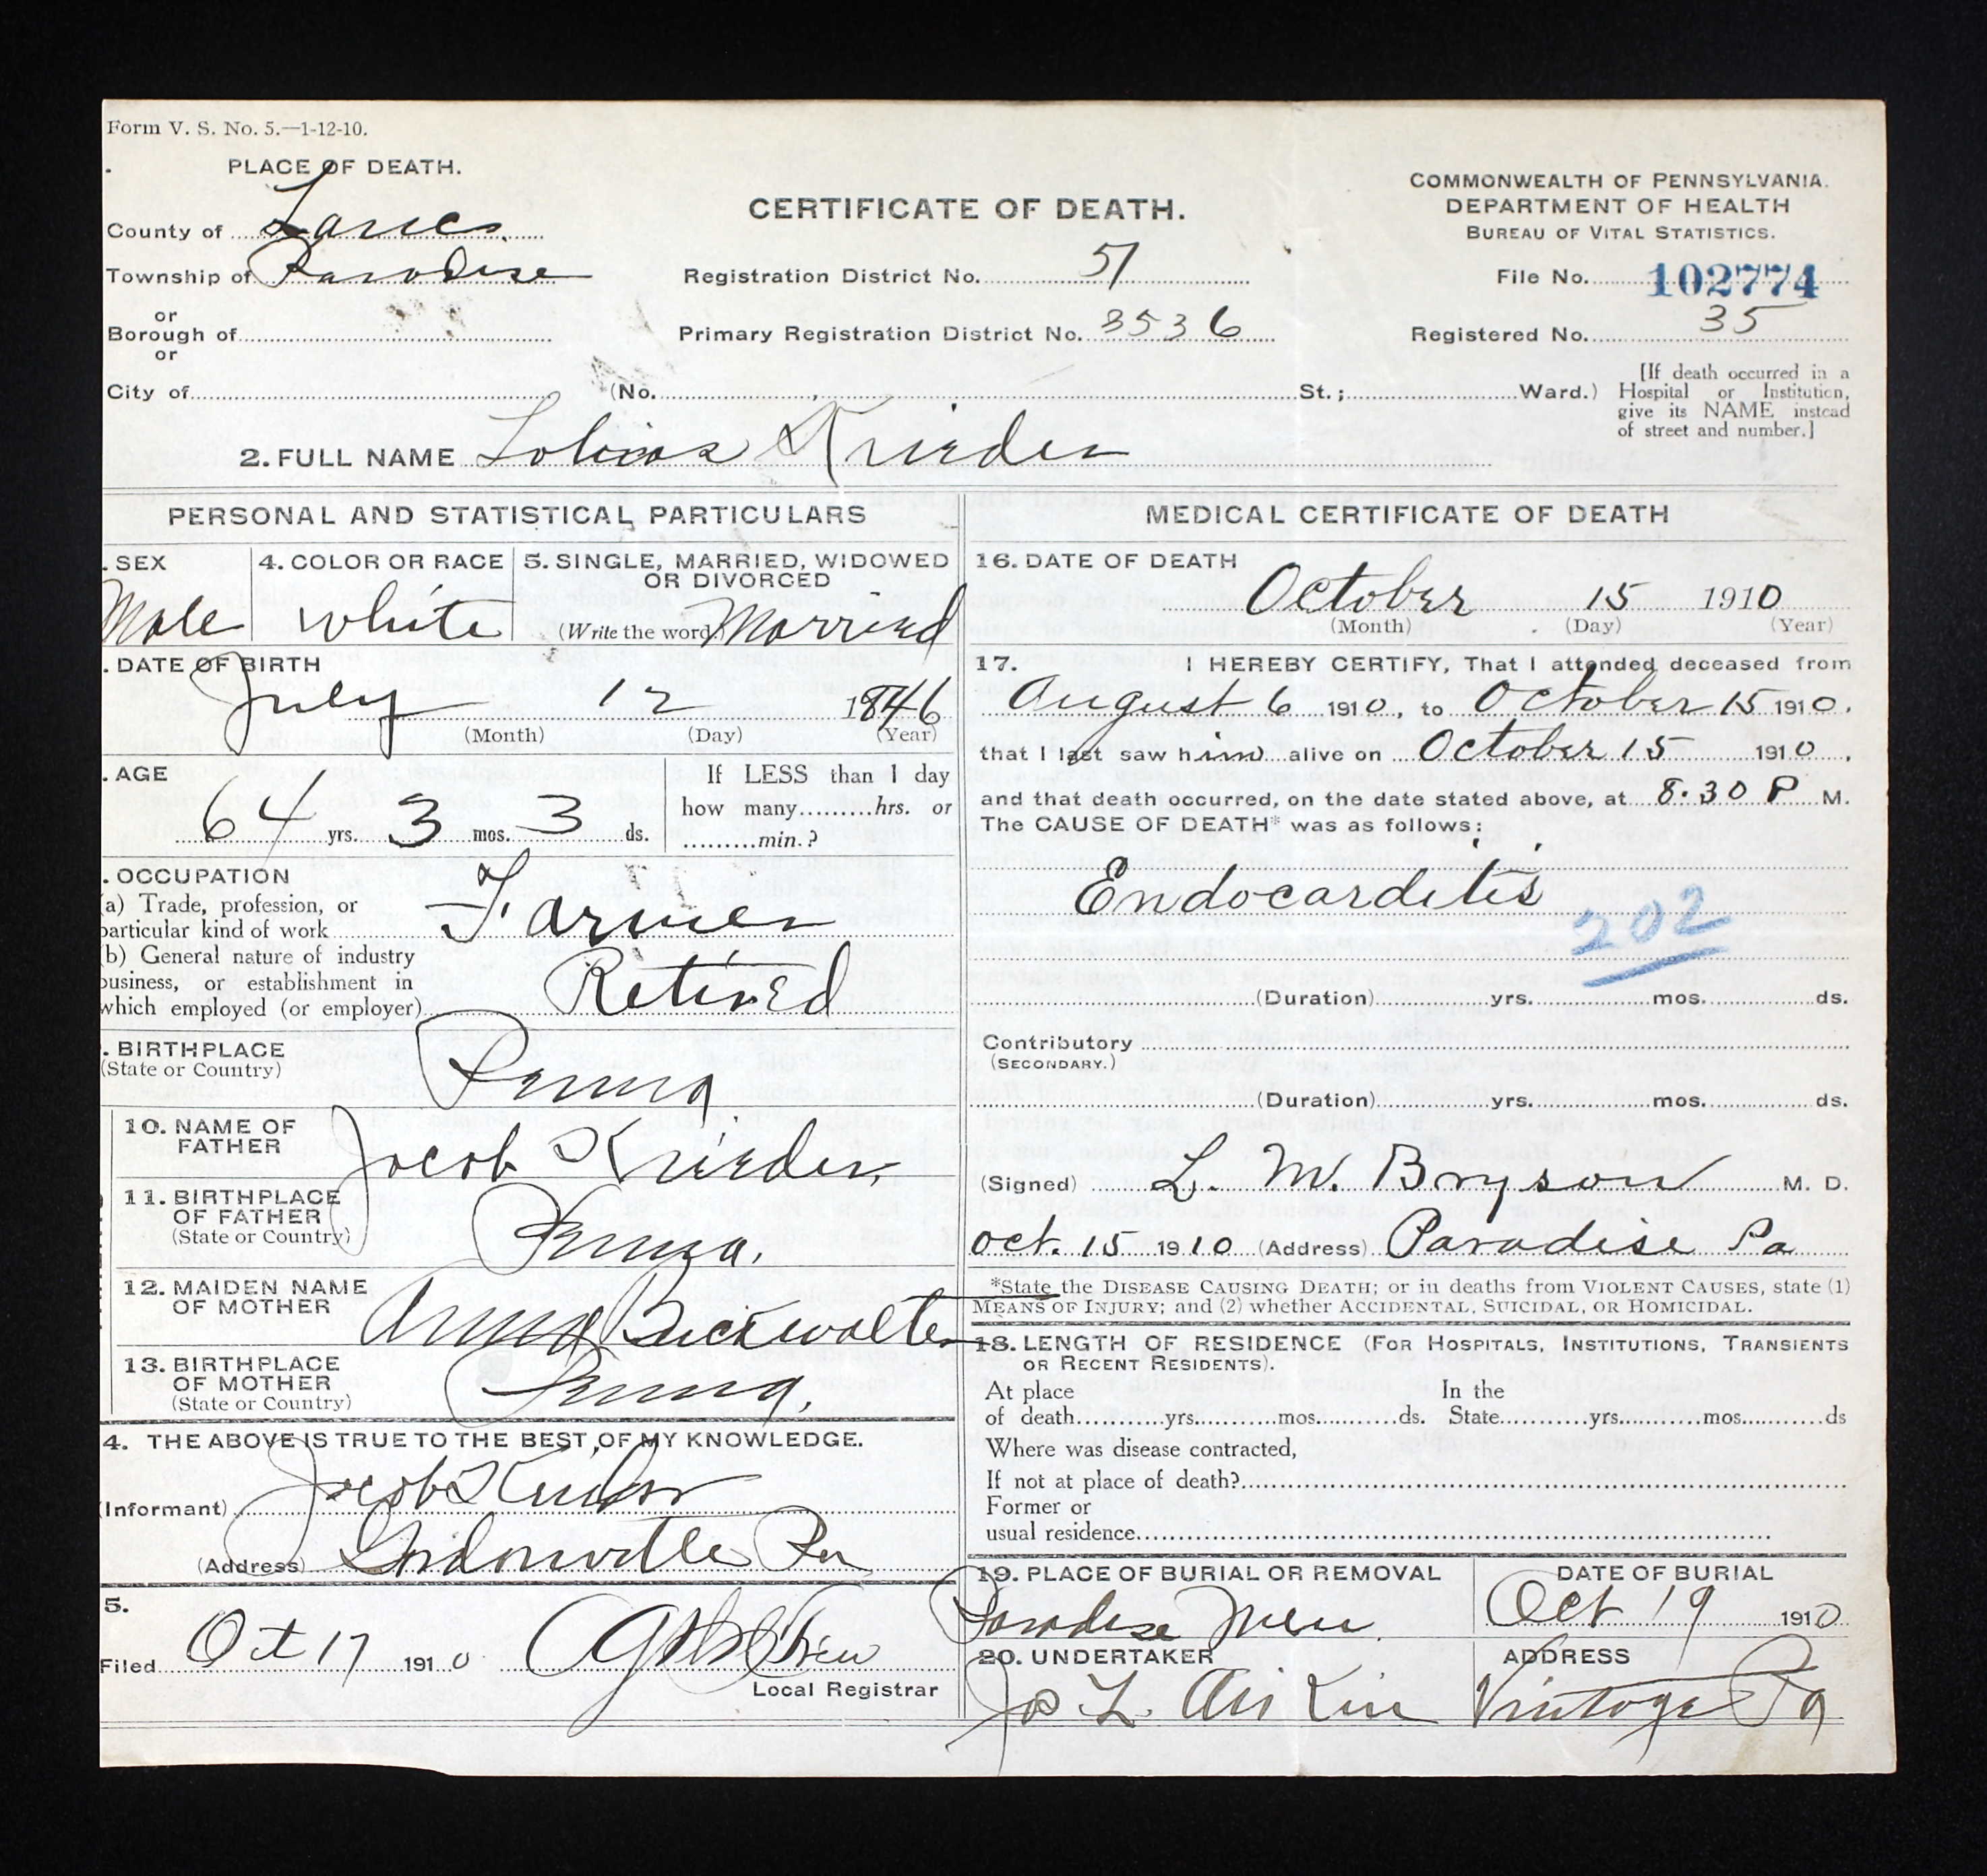 Form V. S. No. 5.—1-12-10.
PLACE OF DEATH.
County of Lanc.
Township of Paradise
or
Borough of
or
City of
CERTIFICATE OF DEATH.
Registration District No. 51
Primary Registration District No. 3536
(No. , St.; Ward.)
COMMONWEALTH OF PENNSYLVANIA.
DEPARTMENT OF HEALTH
BUREAU OF VITAL STATISTICS.
File No. 102774
Registered No. 35
[If death occurred in a
Hospital or Institution,
give its NAME instead
of street and number.]
2. FULL NAME Tobias Krieder
PERSONAL AND STATISTICAL PARTICULARS
. SEX
Male
4. COLOR OR RACE
White
5. SINGLE, MARRIED, WIDOWED
OR DIVORCED
(Write the word) Married
. DATE OF BIRTH
July 12 1846
(Month) (Day) (Year)
. AGE
64 yrs. 3 mos. 3 ds.
If LESS than 1 day
how many hrs. or
min.?
. OCCUPATION
(a) Trade, profession, or
particular kind of work Farmer
(b) General nature of industry
business, or establishment in
which employed (or employer) Retired
. BIRTHPLACE
(State or Country) Penna
10. NAME OF
FATHER Jacob Krieder
11. BIRTHPLACE
OF FATHER
(State or Country) Penna.
12. MAIDEN NAME
OF MOTHER Anna Buckwalter
13. BIRTHPLACE
OF MOTHER
(State or Country) Penna.
4. THE ABOVE IS TRUE TO THE BEST OF MY KNOWLEDGE.
(Informant) Jacob Krieder
(Address) Gordonville Pa
5.
Filed Oct 17 1910
Local Registrar
MEDICAL CERTIFICATE OF DEATH
16. DATE OF DEATH
October 15 1910
(Month) (Day) (Year)
17. I HEREBY CERTIFY, That I attended deceased from
August 6 1910, to October 15 1910,
that I last saw him alive on October 15 1910,
and that death occurred, on the date stated above, at 8.30 P M.
The CAUSE OF DEATH* was as follows:
Endocarditis
202
(Duration) yrs. mos. ds.
Contributory
(SECONDARY.)
(Duration) yrs. mos. ds.
(Signed) L. M. Bryson M. D.
Oct. 15 1910 (Address) Paradise Pa
*State the DISEASE CAUSING DEATH; or in deaths from VIOLENT CAUSES, state (1)
MEANS OF INJURY; and (2) whether ACCIDENTAL, SUICIDAL, OR HOMICIDAL.
18. LENGTH OF RESIDENCE (FOR HOSPITALS, INSTITUTIONS, TRANSIENTS
OR RECENT RESIDENTS).
At place In the
of death yrs. mos. ds. State yrs. mos. ds
Where was disease contracted,
If not at place of death?
Former or
usual residence
19. PLACE OF BURIAL OR REMOVAL
Paradise Menn.
DATE OF BURIAL
Oct 19 1910
20. UNDERTAKER
Jos L. Aikin
ADDRESS
Vintage Pa